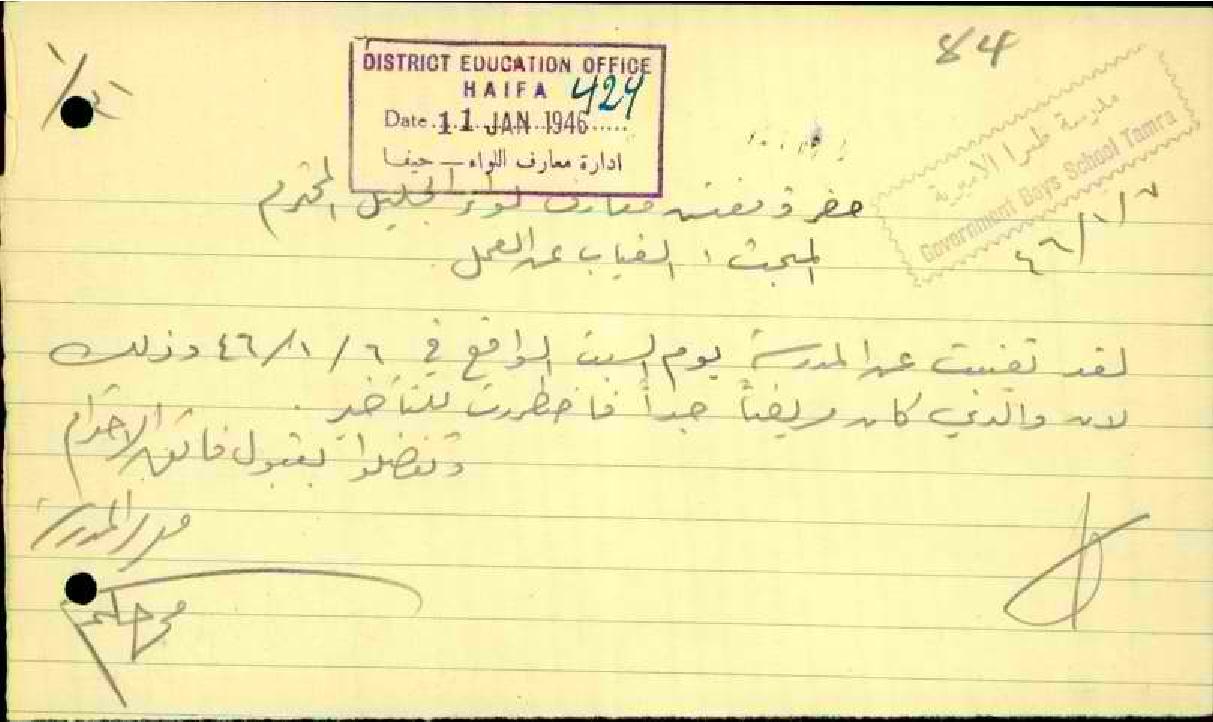 84
DISTRICT EDUCATION OFFICE
HAIFA 424
Date 11 JAN 1946
ادارة معارف اللواء — حيفا
مدرسة طمرا الاميرية
Government Boys School Tamra
٤٦/١/٧
حضرة مفتش معارف لواء الجليل المحترم
المبحث : الغياب عن العمل
لقد تغيبت عن المدرسة يوم السبت الواقع في ٦ / ١/ ٤٦ وذلك
لان والدي كان مريضاً جداً فاضطررت للتأخير .
وتفضلوا بقبول فائق الاحترام
مدير المدرسة